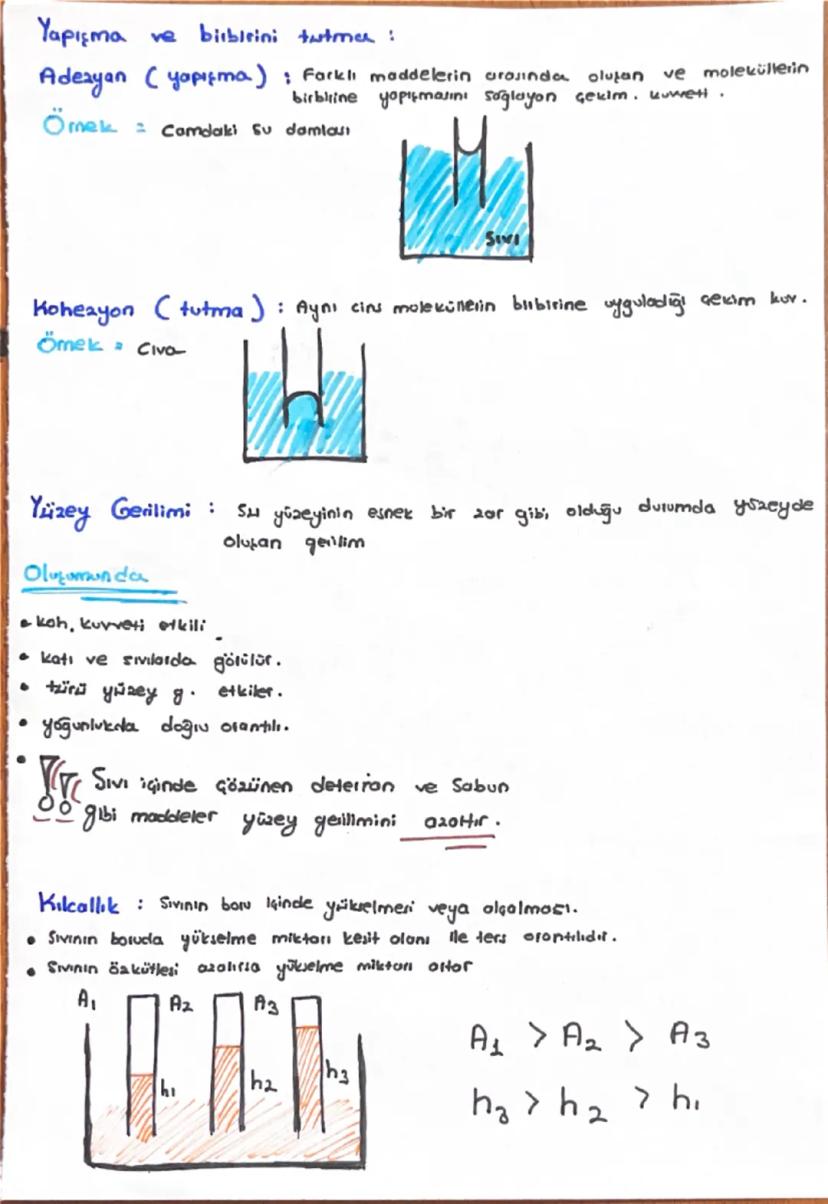 Yapışma ve birbirini tutma :
Adezyon ( yapışma ) : Farklı maddelerin arasında oluşan ve moleküllerin
birbirine yapışmasını sağlayan çekim. kuvveti .
Örnek = Camdaki su damlası
Sıvı
Kohezyon ( tutma ) : Aynı cins moleküllerin birbirine uyguladığı çekim kuv.
Örnek = Cıva
Yüzey Gerilimi : Su yüzeyinin esnek bir zar gibi, olduğu durumda yüzeyde
oluşan gerilim
Oluşumunda
• koh. kuvveti etkili
• katı ve sıvılarda görülür.
• türü yüzey g. etkiler.
• yoğunlukda doğru orantılı.
• !! Sıvı içinde çözünen deterjan ve Sabun
gibi maddeler yüzey gerilimini azaltır .
Kılcallık : Sıvının boru içinde yükselmesi veya alçalması.
• Sıvının boruda yükselme miktarı kesit alanı ile ters orantılıdır.
• Sıvının özkütlesi azalırsa yükselme miktarı artar
A1 A2 A3
h1 h2 h3
A1 > A2 > A3
h3 > h2 > h1